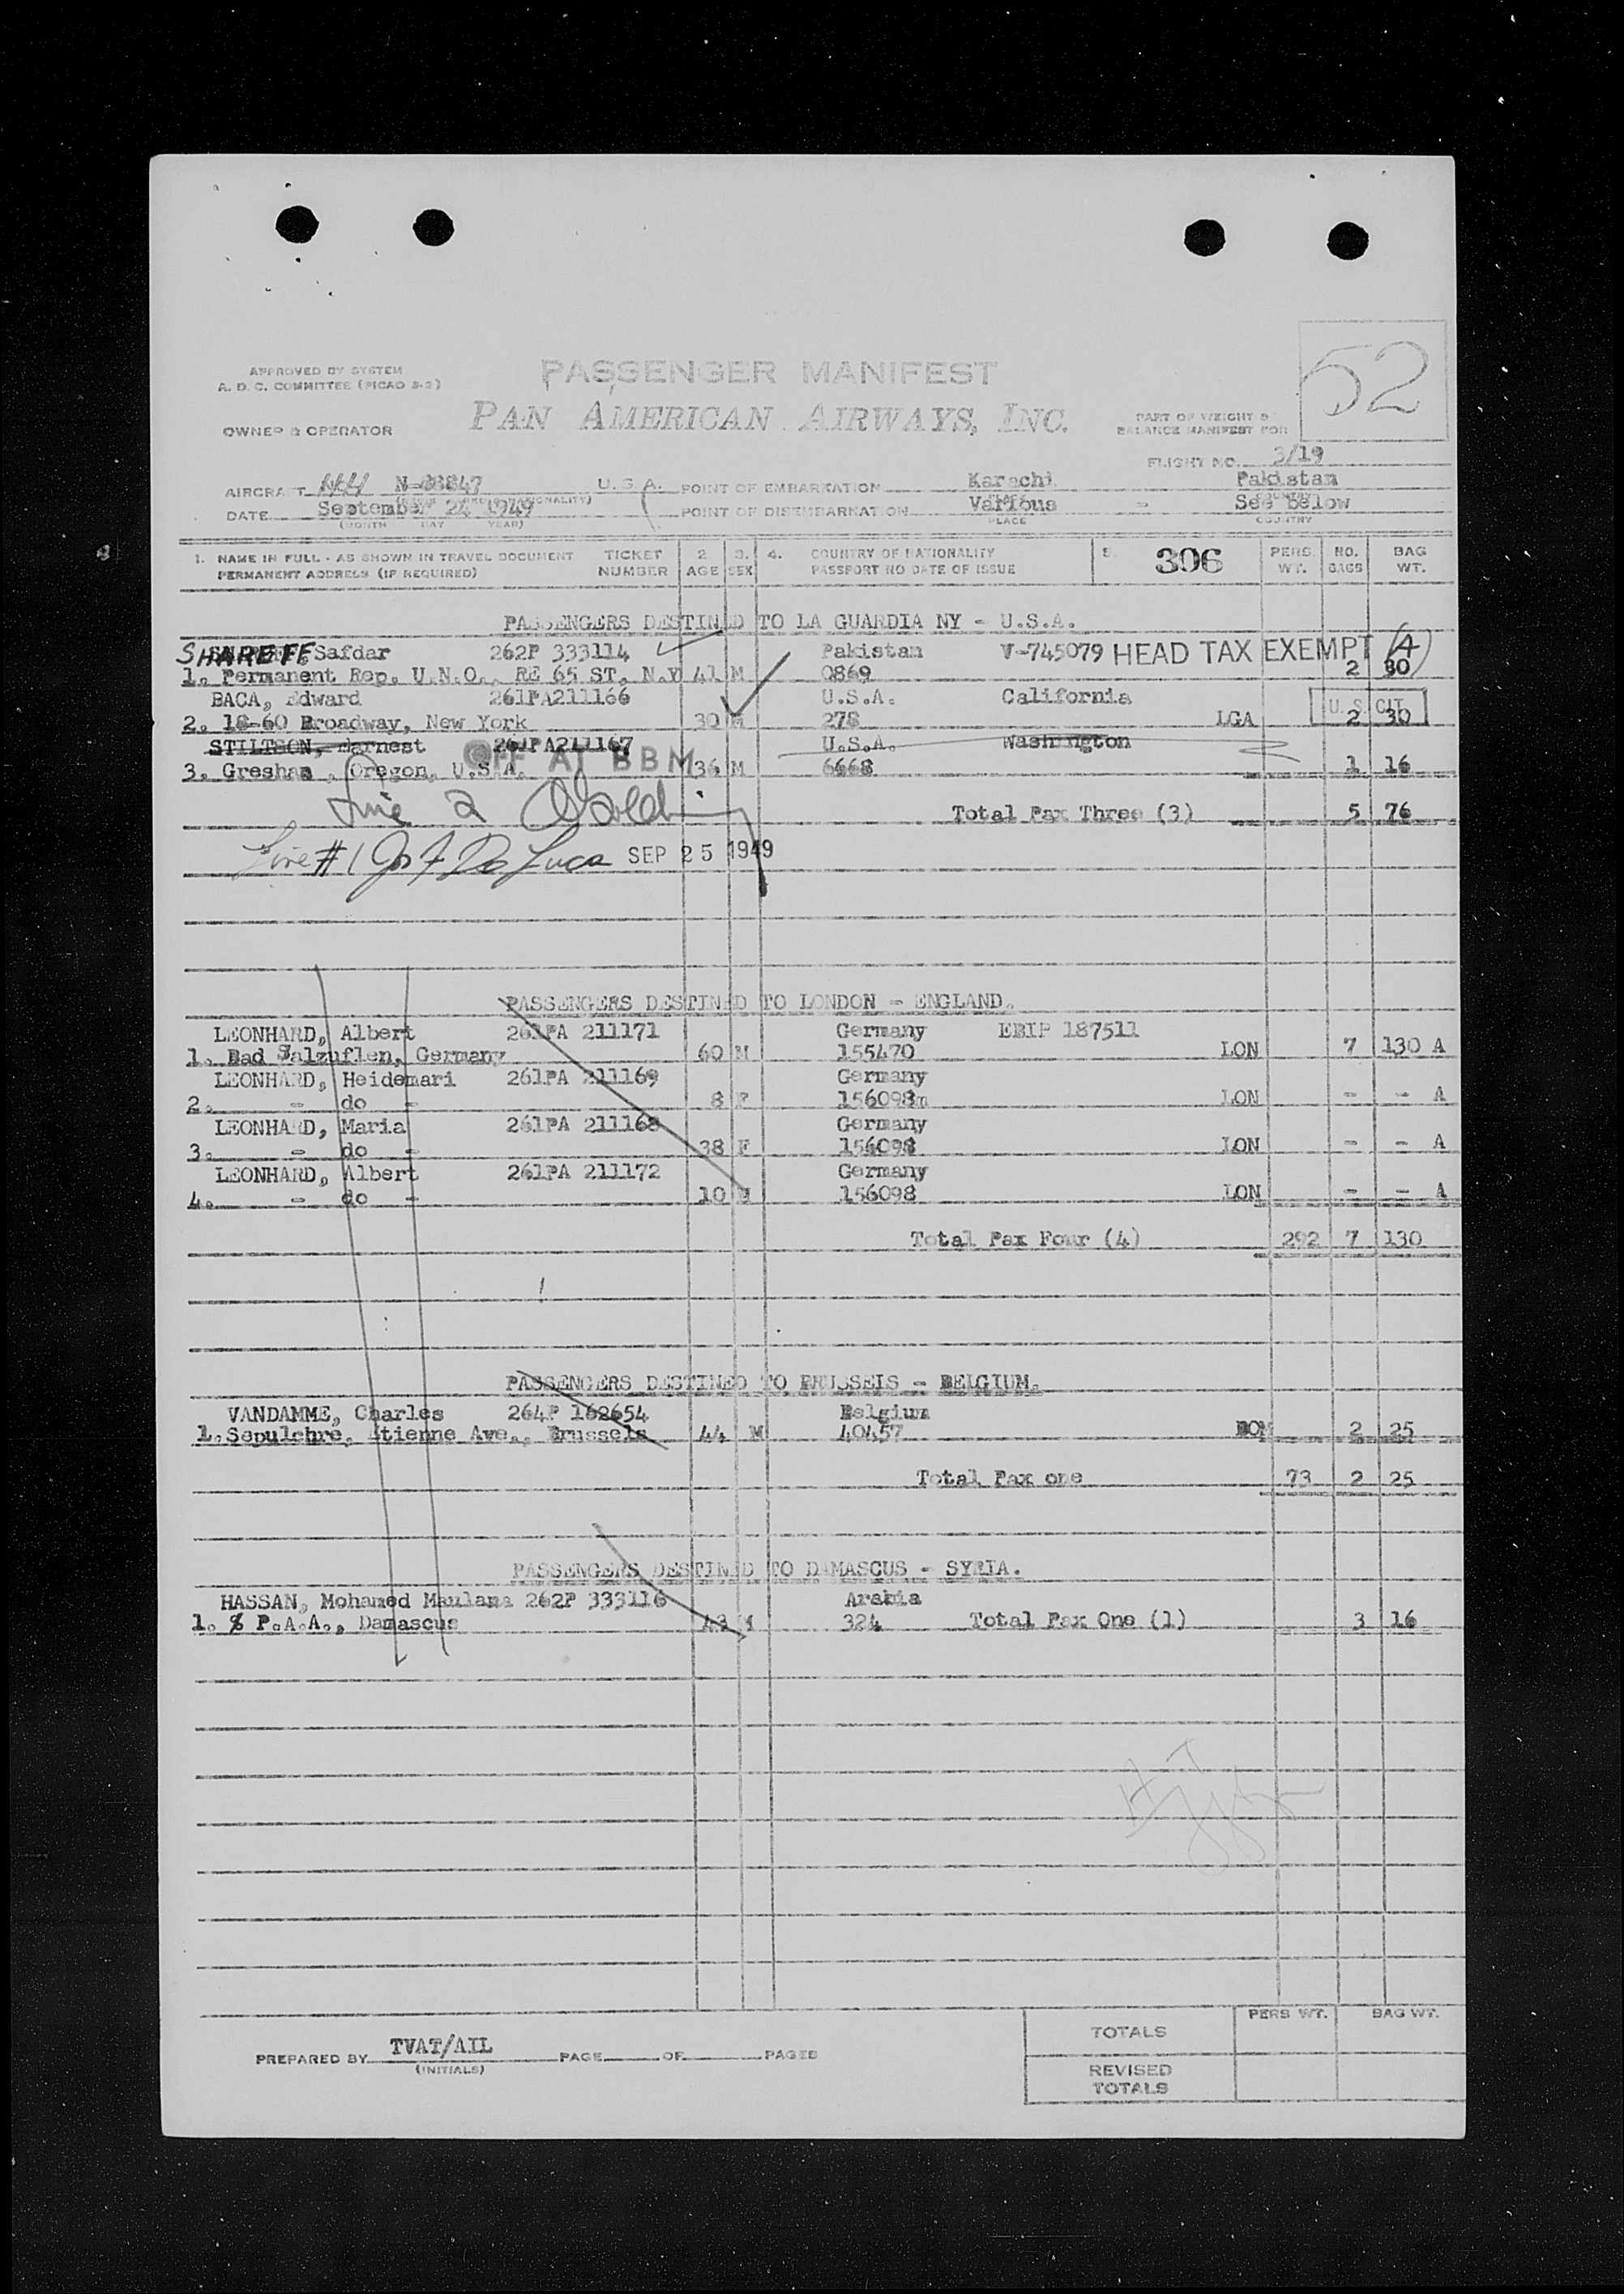 52
APPROVED BY SYSTEM
A. D. C. COMMITTEE (PICAO 3-2)
PASSENGER MANIFEST
OWNER & OPERATOR
PAN AMERICAN AIRWAYS, INC.
PART OF WEIGHT &
BALANCE MANIFEST FOR
FLIGHT NO. 3/19
AIRCRAFT N-88847 U. S. A. POINT OF EMBARKATION Karachi Pakistan
DATE September 24 1949 POINT OF DISEMBARKATION Various - See below
(MONTH DAY YEAR) PLACE COUNTRY
1. NAME IN FULL - AS SHOWN IN TRAVEL DOCUMENT TICKET 2. 3. 4. COUNTRY OF NATIONALITY 5. 306 PERS. NO. BAG
PERMANENT ADDRESS (IF REQUIRED) NUMBER AGE SEX PASSPORT NO DATE OF ISSUE WT. BAGS WT.
PASSENGERS DESTINED TO LA GUARDIA NY - U.S.A.
SHAREFF, Safdar 262P 333114 Pakistan V-745079 HEAD TAX EXEMPT (A)
1. Permanent Rep. U.N.O., RE 65 ST. N.Y 41 M 0869 2 30
BACA, Edward 261PA211166 U.S.A. California U. S. CIT
2. 18-60 Broadway, New York 30 M 278 LGA 2 30
STILTSON, Earnest 261PA211167 U.S.A. Washington
OFF AT BBM
3. Gresham, Oregon, U.S.A. 36 M 6668 1 16
Line 2
Total Pax Three (3) 5 76
Line #1 Jos F De Luca SEP 25 1949
PASSENGERS DESTINED TO LONDON - ENGLAND.
LEONHARD, Albert 261PA 211171 Germany EBIP 187511
1. Bad Salzuflen, Germany 60 M 155470 LON 7 130 A
LEONHARD, Heidemari 261PA 211169 Germany
2. - do - 8 F 156098m LON - - A
LEONHARD, Maria 261PA 211168 Germany
3. - do - 38 F 156098 LON - - A
LEONHARD, Albert 261PA 211172 Germany
4. - do - 10 M 156098 LON - - A
Total Pax Four (4) 292 7 130
PASSENGERS DESTINED TO BRUSSELS - BELGIUM.
VANDAMME, Charles 264P 162654 Belgium
1. Sepulchre, Etienne Ave., Brussels 44 M 40457 2 25
Total Pax one 73 2 25
PASSENGERS DESTINED TO DAMASCUS - SYRIA.
HASSAN, Mohamed Maulana 262P 333116 Arabia
1. % P.A.A., Damascus M 324 Total Pax One (1) 3 16
PERS WT. BAG WT.
TOTALS
PREPARED BY TVAT/AIL PAGE OF PAGES
(INITIALS)
REVISED
TOTALS